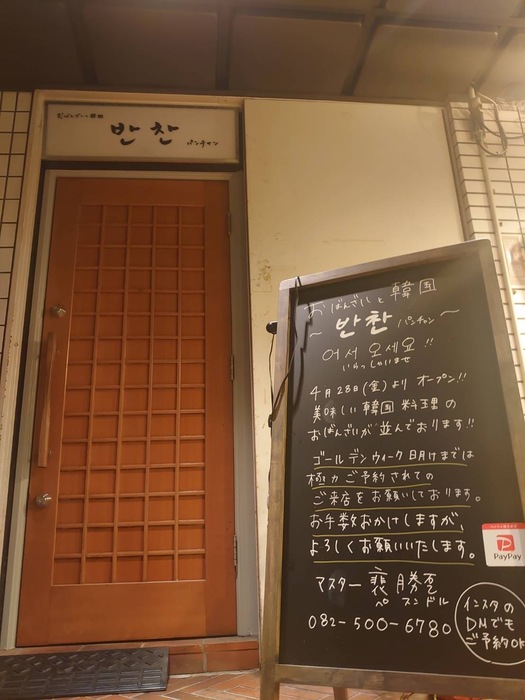 おばんざいと韓国
반찬 パンチャン
おばんざいと韓国
~반찬 パンチャン~
어서 오세요!!
いらっしゃいませ
4月28日(金)より オープン!!
美味しい韓国料理の
おばんざいが並んでおります!!
ゴールデンウィーク明けまでは
極力ご予約されての
ご来店をお願いしております。
お手数おかけしますが、
よろしくお願いいたします。
マスター 裵 勝
ペ スンドル
082-500-6780
インスタの
DMでも
ご予約OK
PayPay